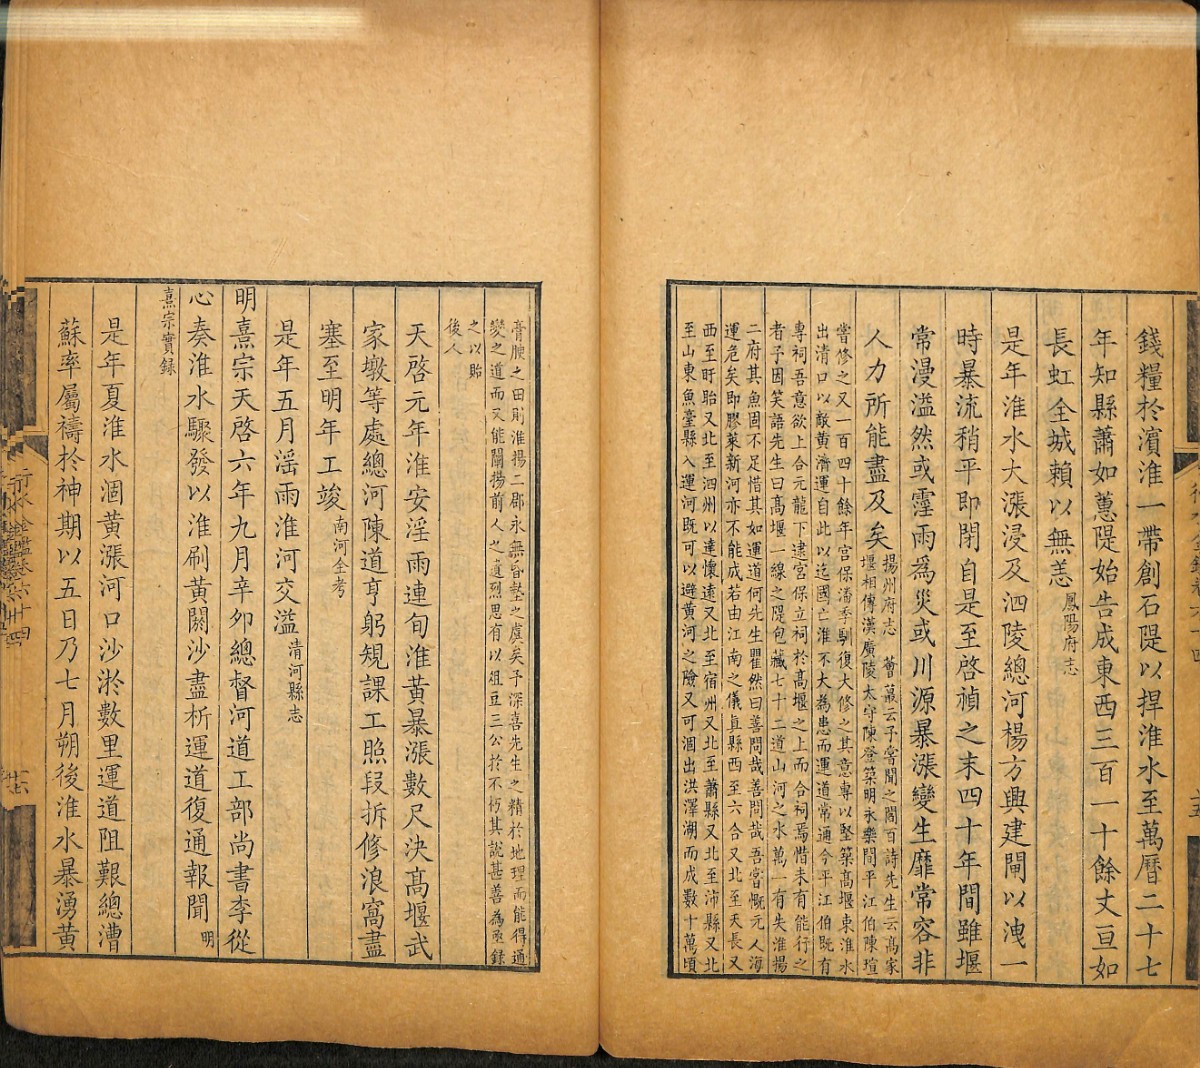 錢糧於濵淮一帶創石隄以捍淮水至萬曆二十七
年知縣蕭如蕙隄始告成東西三百一十餘丈亘如
長虹全城賴以無恙鳳陽府志
是年淮水大漲浸及泗陵總河楊方興建閘以洩一
時暴流稍平即閉自是至啓禎之末四十年間雖堰
常漫溢然或霪雨為災或川源暴漲變生靡常容非
人力所能盡及矣揚州府志　薈蕞云予嘗聞之閻百詩先生云高家
堰相傳漢廣陵太守陳登築明永樂間平江伯陳瑄
嘗修之又一百四十餘年宮保潘季馴復大修之其意專以堅築高堰束淮水
出清口以敵黄濟運自此以迄國亡淮不大為患而運道常通今平江伯既有
專祠吾意欲上合元龍下逮宮保立祠於高堰之上而合祠焉惜未有能行之
者予因笑語先生曰高堰一線之隄包藏七十二道山河之水萬一有失淮揚
二府其魚固不足惜其如運道何先生瞿然曰善問哉善問哉吾嘗慨元人海
運危矣即膠萊新河亦不能成若由江南之儀真縣西至六合又北至天長又
西至盱眙又北至泗州以達懷遠又北至宿州又北至蕭縣又北至沛縣又北
至山東魚臺縣入運河既可以避黄河之險又可涸出洪澤湖而成數十萬頃
膏腴之田則淮揚二郡永無昏墊之虞矣予深喜先生之精於地理而能得通
變之道而又能闡揚前人之遺烈思有以俎豆三公於不朽其說甚善為亟録
之以貽
後人
天啓元年淮安淫雨連旬淮黄暴漲數尺決高堰武
家墩等處總河陳道亨躬規課工照段拆修浪窩盡
塞至明年工竣南河全考
是年五月滛雨淮河交溢清河縣志
明熹宗天啓六年九月辛夘總督河道工部尚書李從
心奏淮水驟發以淮刷黄闕沙盡析運道復通報聞明
熹宗實録
是年夏淮水涸黄漲河口沙淤數里運道阻艱總漕
蘇率屬禱於神期以五日乃七月朔後淮水暴湧黄
行水金鑑卷六十四